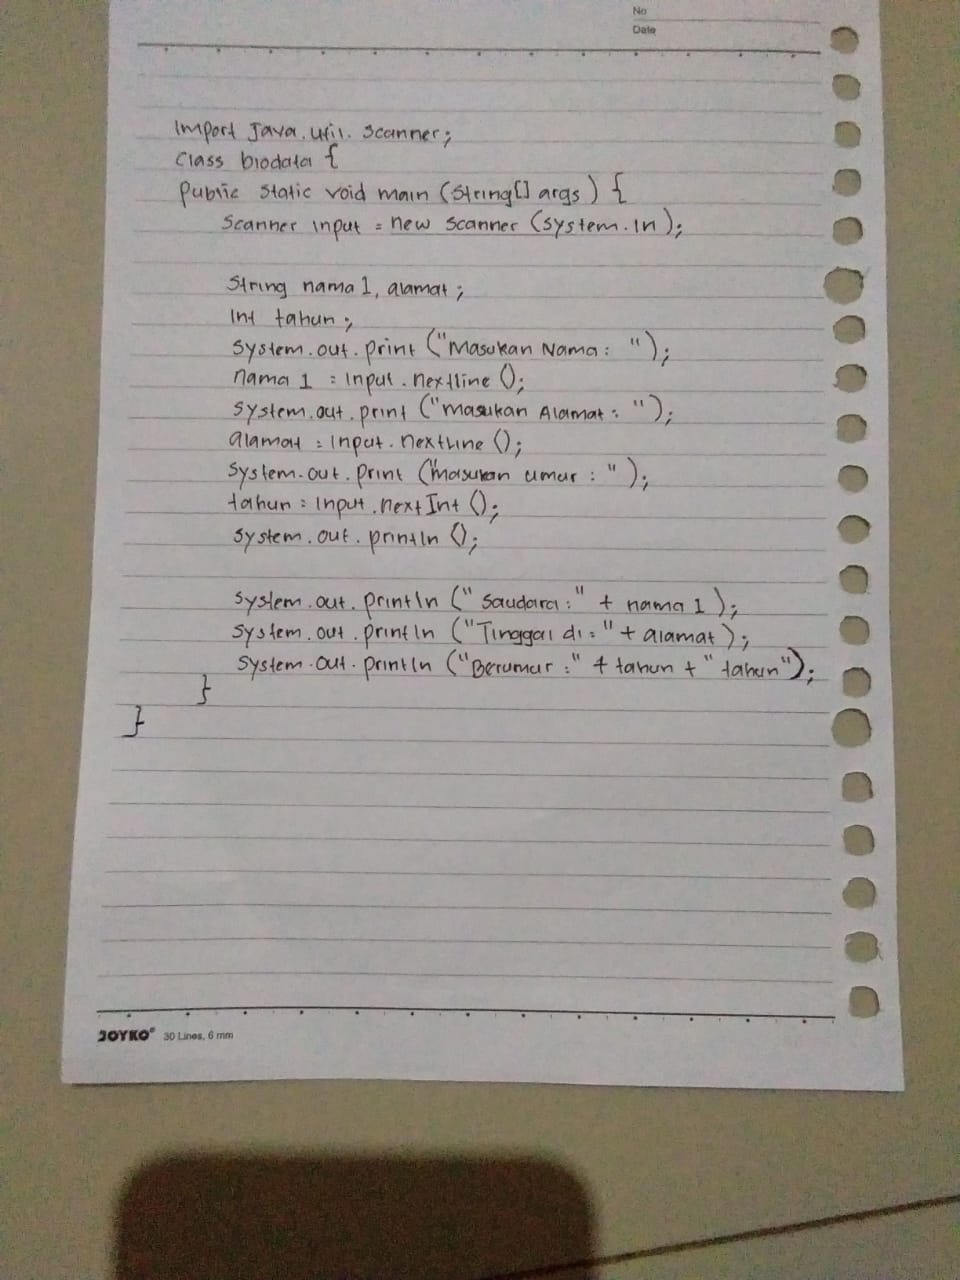 No
Date
Import Java.util.scanner;
Class biodata {
Public static void main (String[] args) {
Scanner input = new scanner (system.In);
String nama 1, alamat;
Int tahun;
System.out.print ("Masukan Nama : ");
nama 1 = Input.nextline ();
System.out.print ("masukan Alamat : ");
alamat = Input.nextLine ();
System.out.print ("Masukan umur : ");
tahun = Input.nextInt ();
System.out.println ();
System.out.println ("Saudara :" + nama 1);
System.out.println ("Tinggal di :" + alamat);
System.out.println ("Berumur :" + tahun + " tahun");
}
}
JOYKO® 30 Lines, 6 mm